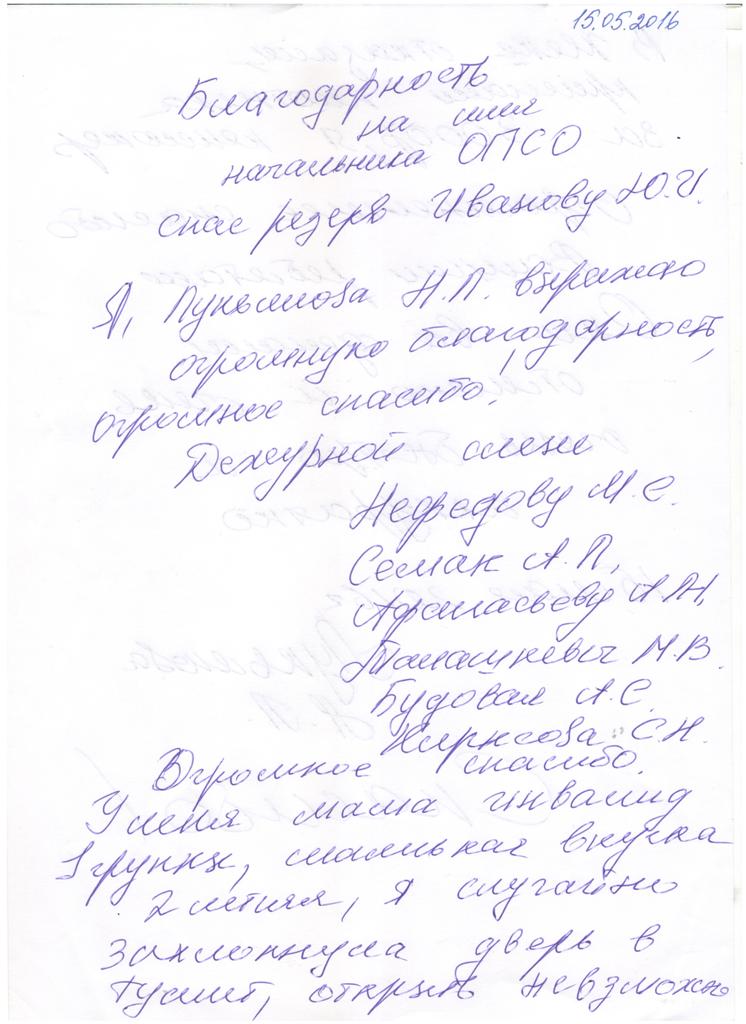 15.05.2016
Благодарность
на имя
начальника ОПСО
спас резерв Иванову Ю.И.
Я, Лукьянова Н.П. выражаю
огромную благодарность,
огромное спасибо!
Дежурной смене
Нефедову М.С.
Семак А.П,
Афанасьеву А.Н,
Талашкевич М.В.
Будовая А.С.
С.Н.
Огромное спасибо.
У меня мама инвалид
1 группы, маленькая внучка
2 летняя, я случайно
захлопнула дверь в
туалет, открыть невзможно